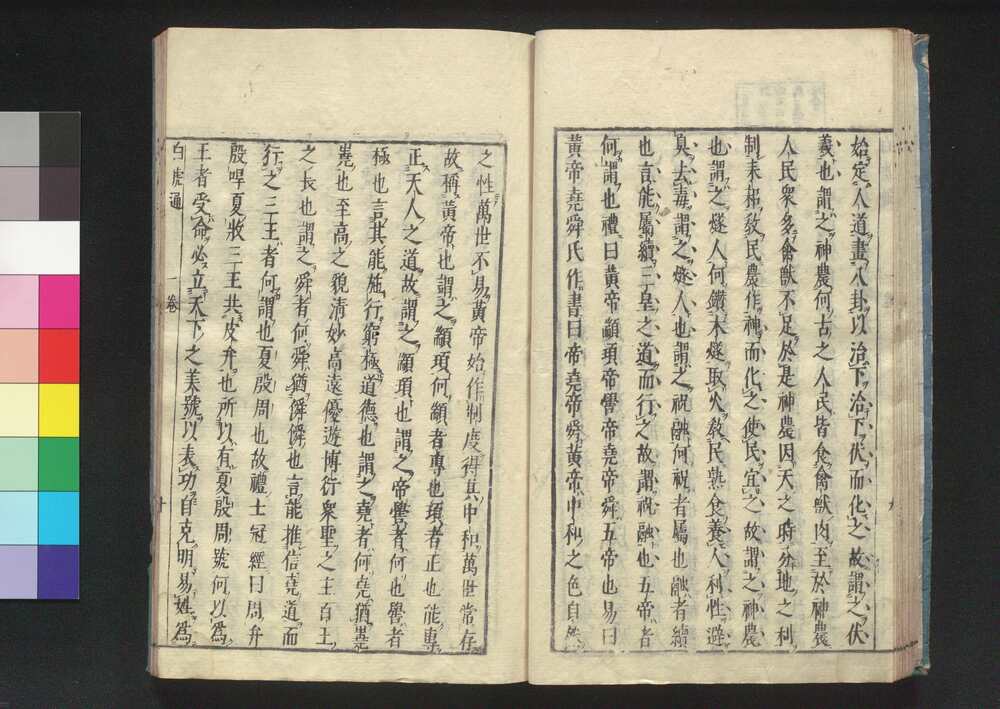 始定人道畫八卦以治下治下伏而化之故謂之伏
羲也謂之神農何古之人民皆食禽獸肉至於神農
人民衆多禽獸不足於是神農因天之時分地之利
制耒耜敎民農作神而化之使民宜之故謂之神農
也謂之燧人何鑽木燧取火敎民熟食養人利性避
臭去毒謂之燧人也謂之祝融何祝者屬也融者續
也言能屬續三皇之道而行之故謂祝融也五帝者
何謂也禮曰黃帝顓頊帝嚳帝堯帝舜五帝也易曰
黃帝堯舜氏作書曰帝堯帝舜黃帝中和之色自然
之性萬世不易黃帝始作制度得其中和萬世常存
故稱黃帝也謂之顓頊何顓者專也頊者正也能專
正天人之道故謂之顓頊也謂之帝嚳者何也嚳者
極也言其能施行窮極道德也謂之堯者何堯猶嶤
嶤也至高之貌淸妙高遠優遊博衍衆聖之主百王
之長也謂之舜者何舜猶僢僢也言能推信堯道而
行之三王者何謂也夏殷周也故禮士冠經曰周弁
殷哻夏收三王共皮弁也所以有夏殷周號何以爲
王者受命必立天下之美號以表功自克明易姓爲
白虎通 一卷 十
九